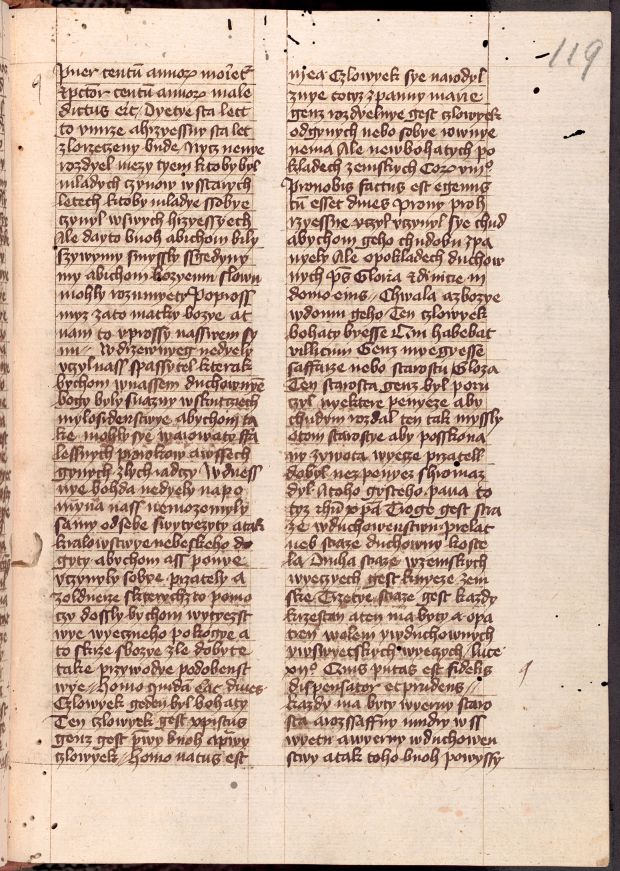 119
Puer centu annorum moriet
et pctor centu annorum male
dictus erit Dyetye sta lect
to vmrze ahrzyessny sta let
zlorzeczeny bude Nycz nenye
rozdyel mezy tyem ktoby byl
mladych czynow wstarych
letech ktoby mladye ssobye
czynyl wswych hrzyessyech
Ale dayto buoh abichom byly
szywymy smyssly ssgedyny
my abichom bozyemu slowu
mohly rozumyety Popross
myz zato matky bozye at
nam to vprossy nasswem sy
nu Wdrzewnyeg nedyely
vczyl nass spassytel kterak
bychom wnassem duchownye
bogy byly snazny wskutczech
mylosrdenstwye abychom ta
ke mohly sye warowaty fa
lessnych prorokow awssech
gynych zlych radgy Wdness
nye bohda nedyely napo
myna nass nemozemyly
samy odsebe swytyezyty atak
kralowstwye nebeskeho do
gyty abychom ass ponye
vczynyly sobye przately a
zoldnerze skterychzto pomo
czy dossly bychom wytyezst
wye wyecznego pokogye a
to skrze sbozye zle dobyte
take przywodye podobenst
wye Homo quida erat diues
Czlowyek geden byl bohaty
Ten czlowyek gest xpistus
genz gest prwy buoh aprwy
czlowyek Homo natus est
in ea Czlowyek sye narodyl
znye totyz zpanny marie
genz rozdyelnye gest czlowyek
odgynych nebo sobye wwnye
nema Ale newbohatych po
kladech zemskych Cor viii
Pronobis factus est egenus
cu esset diues Prony pro h
rzyessne vczyl vczynyl sye chud
abychom geho chudobu zpa
nyely Ale opokladech duchow
nych ps Gloria et diuicie in
domo eius Chwala azbozye
wdomu geho Ten czlowyek
bohaty byesse Qui habebat
villicum Genz myegyesse
saffarze nebo starostu Gloza
Ten starosta genz byl poru
czyl nyektere penyeze aby
chudym rozdal ten tak myssly
otom starostye aby posskona
ny zywota wyecze przatell
dobyl nez penyez shromaz
dyl Atoho gysteho pana to
tyz ihu xpa Troge gest stra
ze wduchowenstwu prelat
neb straze duchowny koste
la Druha straze wzemskych
wyeczyech gest knyeze zem
ske Trzetye straze gest kazdy
krzestan aten ma byty a opa
tren wolem ywduchownych
ywswyetskych wyeczych luce
xii Quis putas est fidelis
dispensator et prudens
kazdy ma byty wyerny staro
sta arozssaffny mudry wss
wyetu awyerny wduchowen
stwy atak toho buoh powyssy